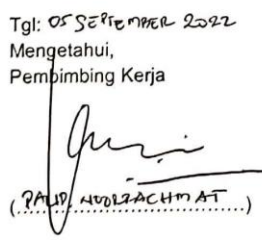 Tgl: 05 SEPTEMBER 2022
Mengetahui,
Pembimbing Kerja
(NOORRACHMAT)